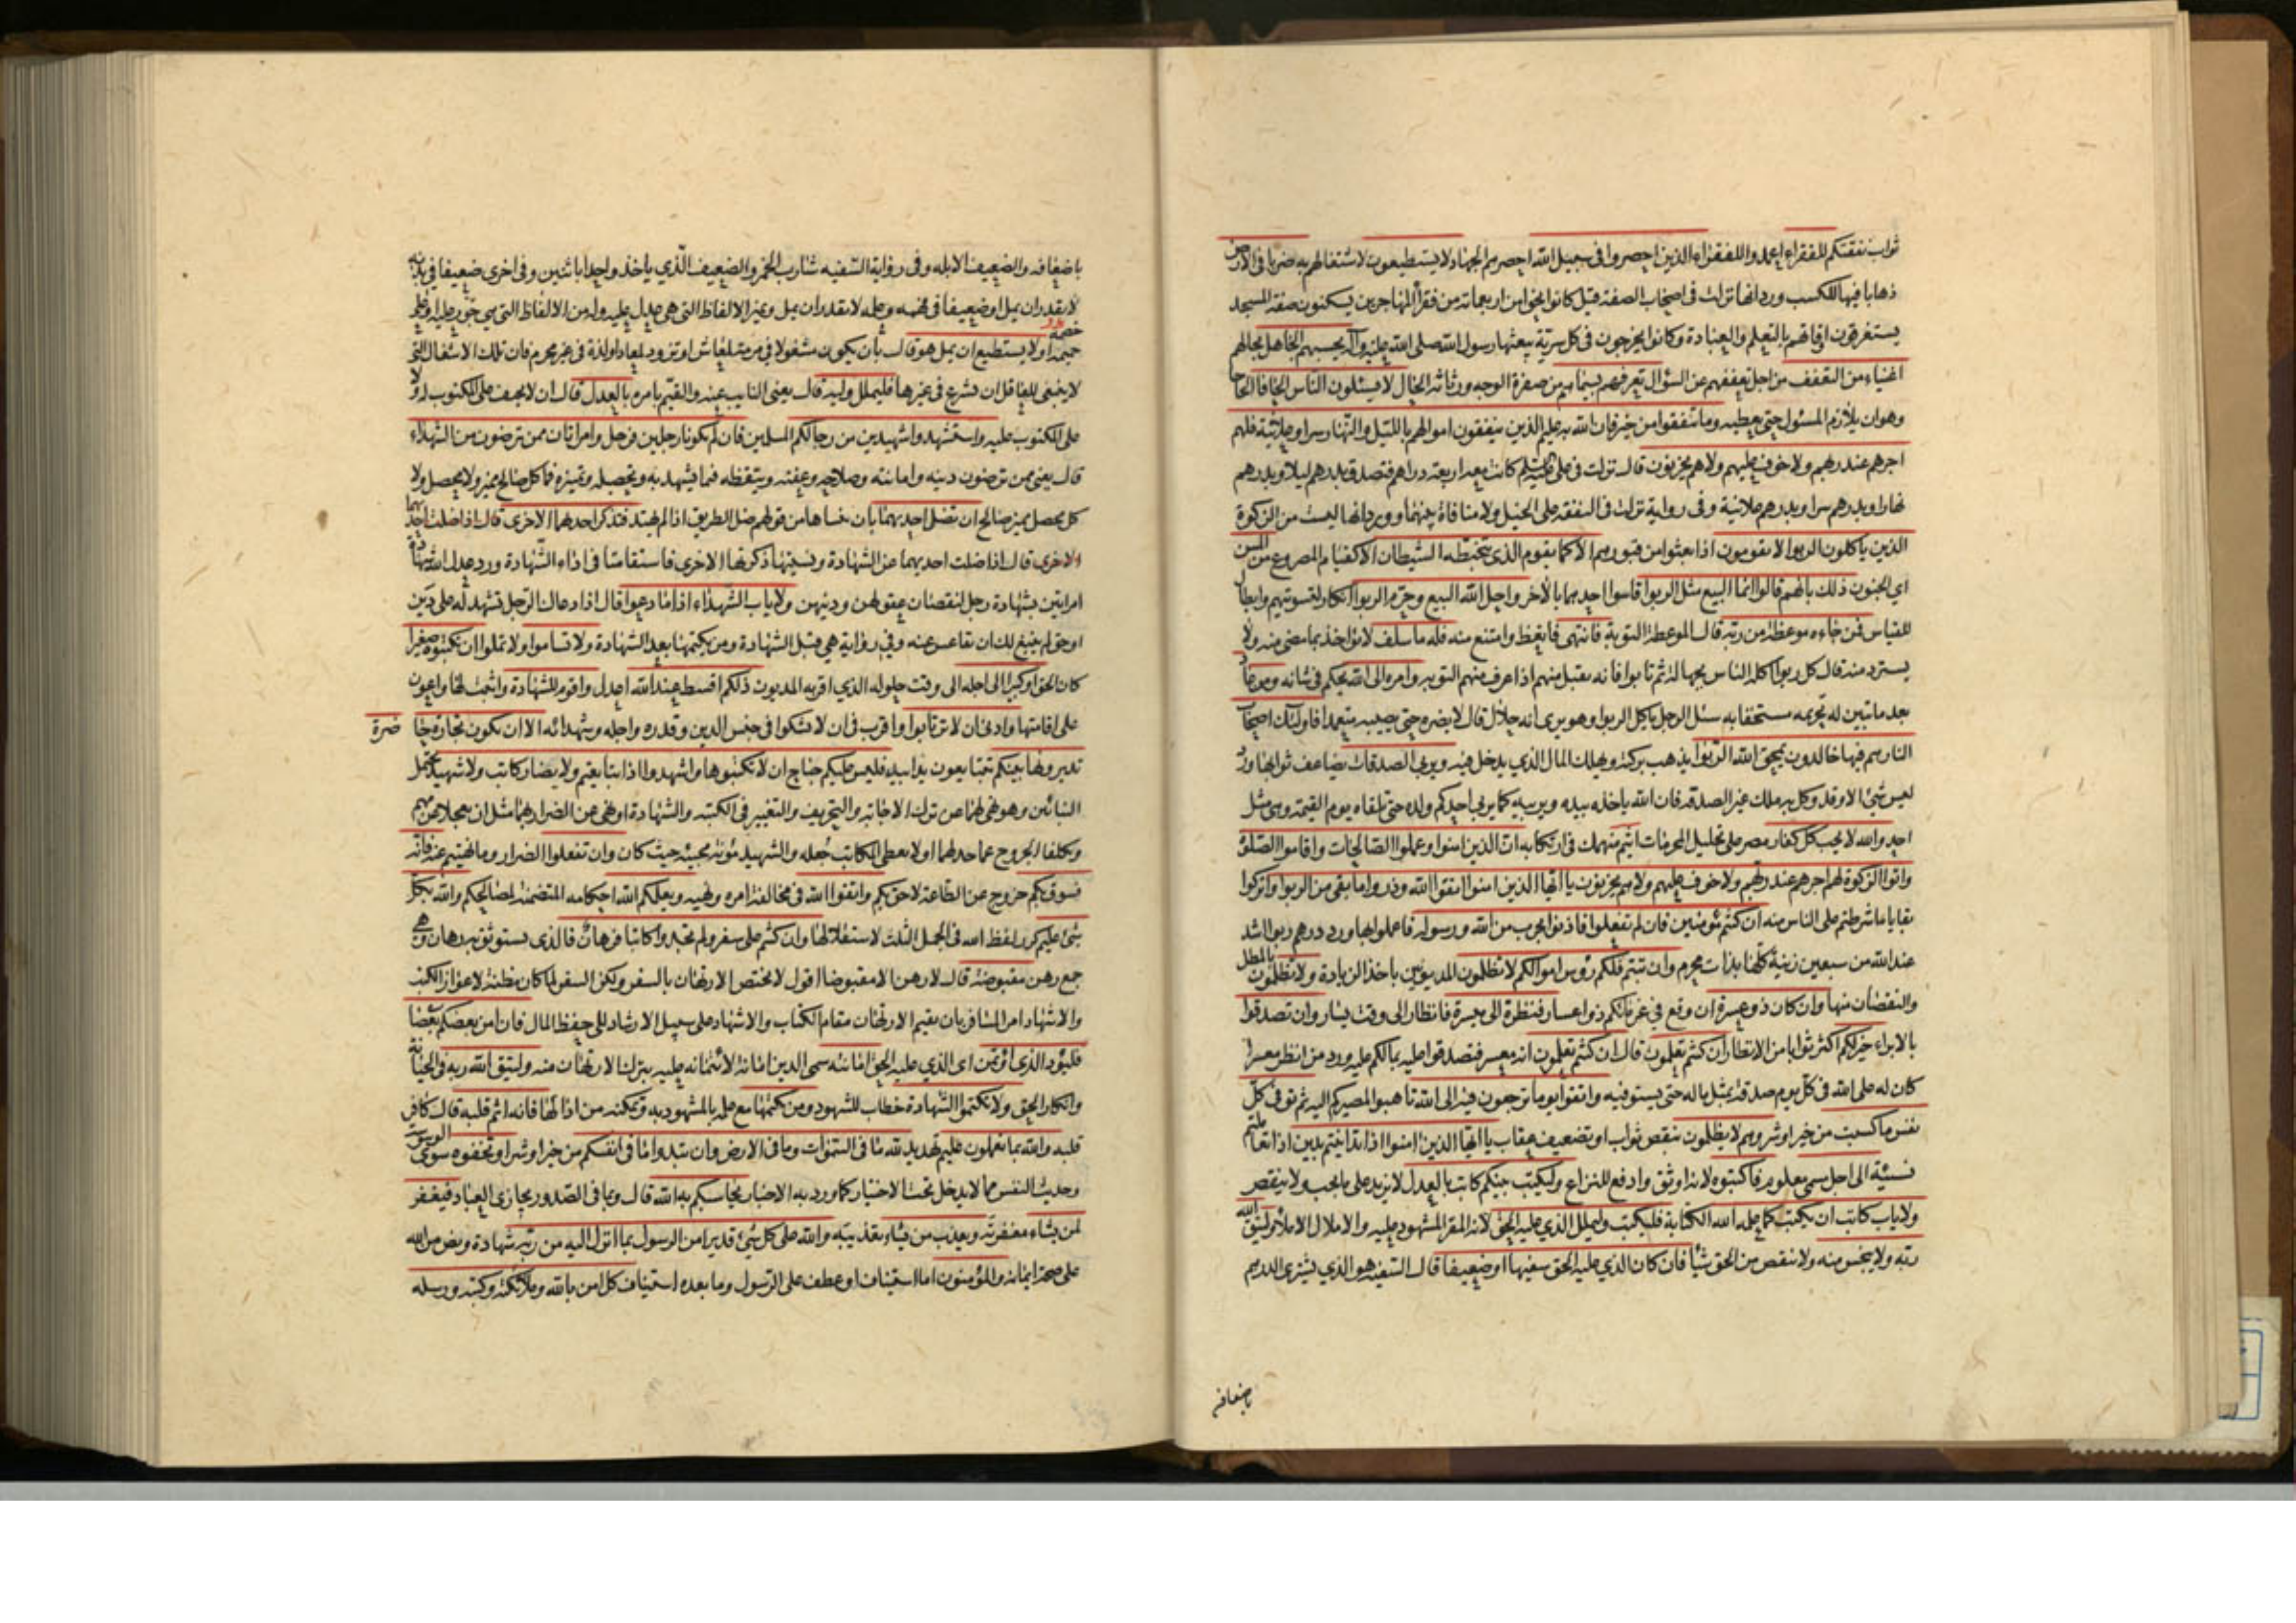 ثواب نفقتكم للفقراء اعمدوا للفقراء الذين احصروا في سبيل الله احصرهم الجهاد لا يستطيعون لاشتغالهم به ضربا في الارض
ذهابا فيها للكسب ورد انها نزلت في اصحاب الصفة قيل كانوا نحوا من اربعمائة من فقراء المهاجرين يسكنون صفة المسجد
يستغرقون اوقاتهم بالتعلم والعبادة وكانوا يخرجون في كل سرية يبعثها رسول الله صلى الله عليه وآله يحسبهم الجاهل بحالهم
اغنياء من التعفف من اجل تعففهم عن السؤال تعرفهم بسيماهم من صفرة الوجه ورثاثة الحال لا يسئلون الناس الحافا الحاحا
وهو ان يلازم المسئول حتى يعطيه وما تنفقوا من خير فان الله به عليم الذين ينفقون اموالهم بالليل والنهار سرا وعلانية فلهم
اجرهم عند ربهم ولا خوف عليهم ولا هم يحزنون قال نزلت في علي كانت معه اربعة دراهم فتصدق بدرهم ليلا وبدرهم
نهارا وبدرهم سرا وبدرهم علانية وفي رواية نزلت في النفقة على الخيل ولا منافاة بينهما وورد انها ليست من الزكوة
الذين ياكلون الربوا لا يقومون اذا بعثوا من قبورهم الا كما يقوم الذي يتخبطه الشيطان الا كقيام المصروع من المس
اي الجنون ذلك بانهم قالوا انما البيع مثل الربوا قاسوا احدهما بالآخر واحل الله البيع وحرم الربوا انكار لتسويتهم وابطال
للقياس فمن جاءه موعظة من ربه قال الموعظة التوبة فانتهى فاتعظ وامتنع منه فله ما سلف لا يؤاخذ بما مضى منه ولا
يسترد منه قال كل ربوا اكله الناس بجهالة ثم تابوا فانه يقبل منهم اذا عرف منهم التوبة وامره الى الله يحكم في شانه ومن عاد
بعد ما تبين له تحريمه مستخفا به سئل الرجل ياكل الربوا وهو يرى انه حلال قال لا يضره حتى يصيبه متعمدا فاولئك اصحاب
النار هم فيها خالدون يمحق الله الربوا يذهب بركته ويهلك المال الذي يدخل فيه ويربي الصدقات يضاعف ثوابها ورد
ليس شئ الا وقد وكل به ملك غير الصدقة فان الله ياخذه بيده ويربيه كما يربي احدكم ولده حتى تلقاه يوم القيمة وهي مثل
احد والله لا يحب كل كفار مصر على تحليل المحرمات اثيم منهمك في ارتكابه ان الذين امنوا وعملوا الصالحات واقاموا الصلوة
واتوا الزكوة لهم اجرهم عند ربهم ولا خوف عليهم ولا هم يحزنون يا ايها الذين امنوا اتقوا الله وذروا ما بقي من الربوا واتركوا
بقايا ما شرطتم على الناس منه ان كنتم مؤمنين فان لم تفعلوا فاذنوا بحرب من الله ورسوله فاعلموا بها ورد درهم ربوا اشد
عند الله من سبعين زنية كلها بذات محرم وان تبتم فلكم رؤس اموالكم لا تظلمون المديونين باخذ الزيادة ولا تظلمون بالمطل
والنقصان منها وان كان ذو عسرة ان وقع في غرمائكم ذو اعسار فنظرة الى ميسرة فانظار الى وقت يسار وان تصدقوا
بالابراء خير لكم اكثر ثوابا من الانظار ان كنتم تعلمون قال ان كنتم تعلمون انه معسر فتصدقوا عليه بمالكم عليه ورد من انظر معسرا
كان له على الله في كل يوم صدقة بمثل ماله حتى يستوفيه واتقوا يوما ترجعون فيه الى الله تاهبوا لمصيركم اليه ثم توفى كل
نفس ما كسبت من خير او شر وهم لا يظلمون بنقص ثواب او تضعيف عقاب يا ايها الذين امنوا اذا تداينتم بدين اذا تعاملتم
نسيئة الى اجل مسمى معلوم فاكتبوه لانه اوثق وادفع للنزاع وليكتب بينكم كاتب بالعدل لا يزيد على ما يجب ولا ينقص
ولا ياب كاتب ان يكتب كما علمه الله الكتابة فليكتب وليملل الذي عليه الحق لانه المقر المشهود عليه والاملال الاملاء وليتق الله
ربه ولا يبخس منه ولا ينقص من الحق شيئا فان كان الذي عليه الحق سفيها او ضعيفا قال السفيه هو الذي يشتري الدرهم
باضعافه
باضعافه والضعيف الابله وفي رواية السفيه شارب الخمر والضعيف الذي ياخذ واحدا باثنين وفي اخرى ضعيفا في بدنه
لا يقدر ان يمل او ضعيفا في فهمه وعلمه لا يقدر ان يمل ويميز الالفاظ التي هي عدل عليه وله من الالفاظ التي هي جور عليه او على
حميمه او لا يستطيع ان يمل هو قال بان يكون مشغولا في مرمة لمعاش او تزود لمعاد او لذة في غير محرم فان تلك الاشغال التي
لا ينبغي للعاقل ان يشرع في غيرها فليملل وليه قال يعني النايب عنه والقيم بامره بالعدل قال ان لا يحيف على المكتوب له ولا
على المكتوب عليه واستشهدوا شهيدين من رجالكم المسلمين فان لم يكونا رجلين فرجل وامراتان ممن ترضون من الشهداء
قال يعني ممن ترضون دينه وامانته وصلاحه وعفته وتيقظه فيما يشهد به وتحصيله وتميزه فما كل صالح مميز ولا محصل ولا
كل محصل مميز صالح ان تضل احديهما بان نساها من قولهم ضل الطريق اذا لم يهتد فتذكر احدهما الاخرى قال اذا ضلت احديهما
الاخرى قال اذا ضلت احديهما عن الشهادة ونسيتها ذكرتها الاخرى فاستقامتا في اداء الشهادة ورد عدل الله شهادة
امراتين بشهادة رجل لنقصان عقولهن ودينهن ولا ياب الشهداء اذا ما دعوا قال اذا دعاك الرجل تشهد له على دين
او حق لم ينبغ لك ان تقاعس عنه وفي رواية هي قبل الشهادة ومن يكتمها بعد الشهادة ولا تساموا ولا تملوا ان تكتبوه صغيرا
كان الحق او كبيرا الى اجله الى وقت حلوله الذي اقر به المديون ذلكم اقسط عند الله اعدل واقوم للشهادة واثبت لها واعون
على اقامتها وادنى ان لا ترتابوا واقرب في ان لا تشكوا في جنس الدين وقدره واجله وشهدائه الا ان تكون تجارة حاضرة
تديرونها بينكم تتبايعون يدا بيد فليس عليكم جناح ان لا تكتبوها واشهدوا اذا تبايعتم ولا يضار كاتب ولا شهيد يحتمل
البنائين وهو نهي لهما عن ترك الاجابة والتحريف والتغيير في الكتبة والشهادة او نهي عن الضرار بهما مثل ان يعجلا عن مهم
ويكلفا الخروج عما حد لهما او لا يعطى الكاتب جعله والشهيد مؤنة مجيئه حيث كان وان تفعلوا الضرار وما نهيتم عنه فانه
فسوق بكم خروج عن الطاعة لاحق بكم واتقوا الله في مخالفة امره ونهيه ويعلمكم الله احكامه المتضمنة لمصالحكم والله بكل
شئ عليم كرر لفظ الله في الجمل الثلث لاستقلالها وان كنتم على سفر ولم تجدوا كاتبا فرهان فالذي يستوثق به رهان وهي
جمع رهن مقبوضة قال لا رهن الا مقبوضا اقول لا يختص الارتهان بالسفر ولكن السفر لما كان مظنة لاعواز الكتب
والاشهاد امر المسافر بان يقيم الارتهان مقام الكتاب والاشهاد على سبيل الارشاد الى حفظ المال فان امن بعضكم بعضا
فليؤد الذي اؤتمن اي الذي عليه الحق امانته سمى الدين امانة لائتمانه عليه بترك الارتهان منه وليتق الله ربه في الخيانة
وانكار الحق ولا تكتموا الشهادة خطاب للشهود ومن يكتمها مع علمه بالمشهود به وتمكنه من ادائها فانه اثم قلبه قال كافر
قلبه والله بما تعملون عليم تهديد لله ما في السموات وما في الارض وان تبدوا ما في انفسكم من خير او شر او تخفوه سوى الوسوسة
وحديث النفس مما لا يدخل تحت الاختيار كما ورد به الاخبار يحاسبكم به الله قال وبما في الصدور يجازى العباد فيغفر
لمن يشاء مغفرته ويعذب من يشاء تعذيبه والله على كل شئ قدير امن الرسول بما انزل اليه من ربه شهادة ونص من الله
على صحة ايمانه والمؤمنون اما استيناف او عطف على الرسول وما بعده استيناف كل امن بالله وملائكته وكتبه ورسله